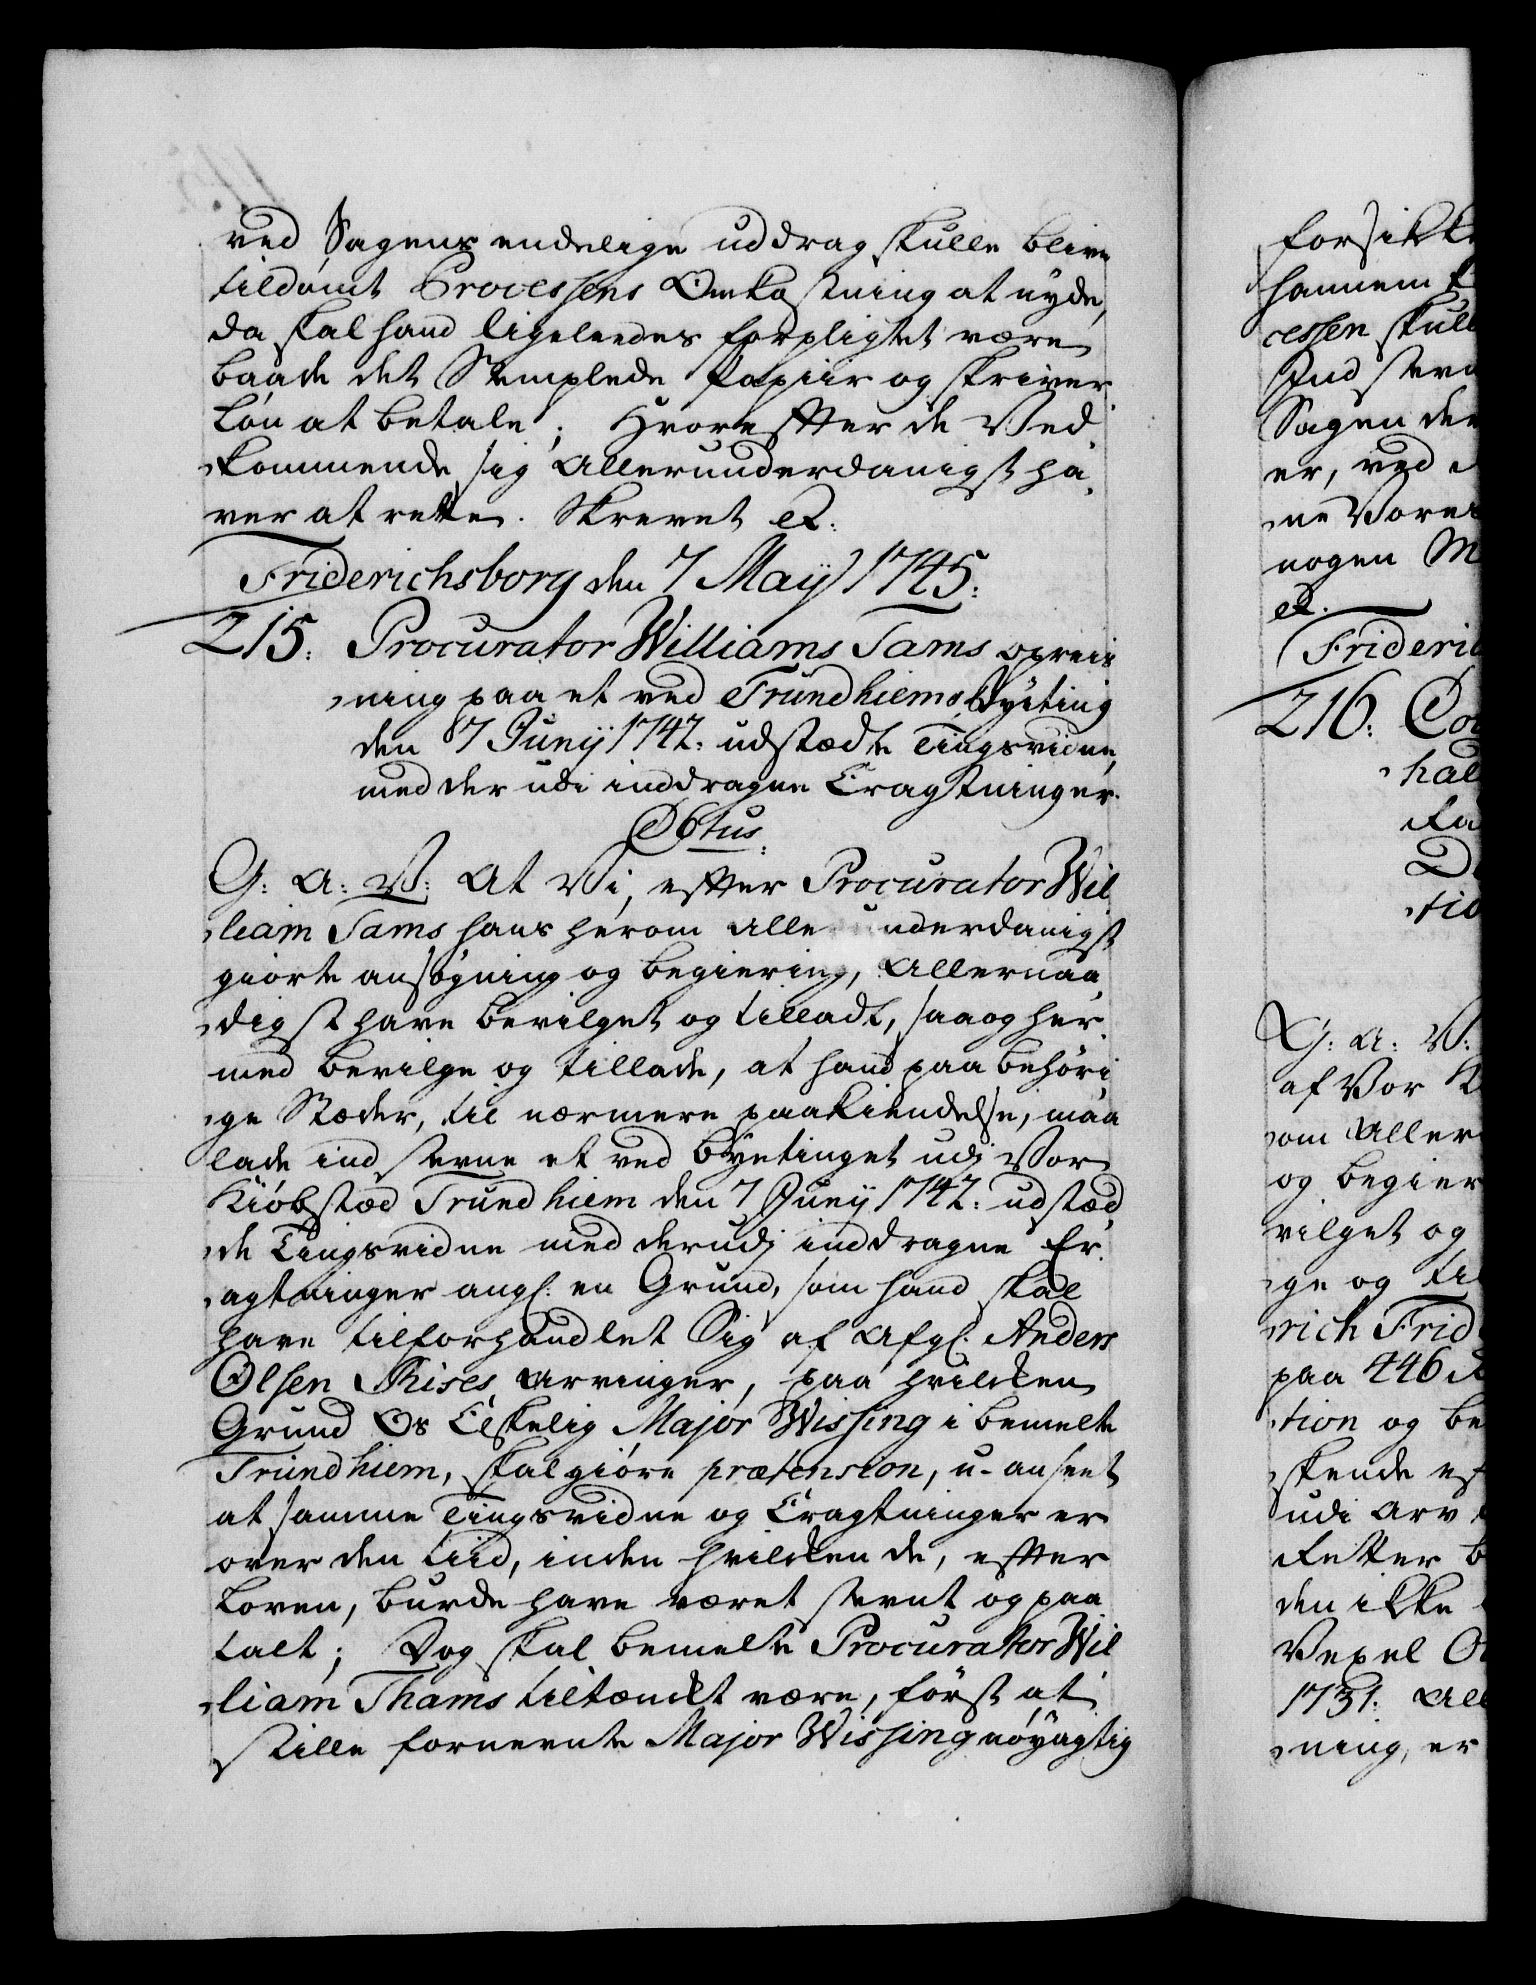 ved Sagens endelige uddrag skulle blive
tildömt Processens Omkostning at nyde,
da skal hand ligeleedes forpligtet være
baade det Stemplede Papiir og skriver
Lön at betale; Hvorefter de Ved-
kommende sig allerunderdanigst ha-
ver at rette. Skrevet &c:
Friderichsborg den 7 Maij 1745:
215: Procurator Williams Tams opreis
ning paa et ved Trundhiems Byeting
den 7 Junij 1742: udstædte Tingsvidne,
med der udi inddragne Eragtninger.
C 6tus.
G: A: V: At Vi, efter Procurator Wil
liam Tams hans herom allerunderdanigst
giorte ansögning og begiering, Allernaa-
digst have bevilget og tilladt, saa og her-
med bevilge og tillade, at hand paa behöri
ge Stæder, til nærmere paakiendelse, maa
lade ind stevne et ved Byetinget udj Vor
Kiöbstæd Trundhiem den 7 Junij 1742: udstæd-
de Tingsvidne med derudj inddragne Er-
agtninger angl: en Grund, som hand skal
have tilforhandlet Sig af Afgl: Anders
Olsen Rises Arvinger, paa hvilcken
Grund Os Elskelig Major Wissing i bemelte
Trundhiem, skal giöre prætension, u-anseet
at samme Tingsvidne og Eragtninger er
over den tiid, inden hvilcken de, efter
Loven, burde have været stevnt og paa
talt; Dog skal bemelte Procurator Wil
liam Thams tiltænckt være, först at
stille fornevnte Major Wissing nöyagtig
forsikk
hannem
cessen skull
Ind stevn
Sagen der
er, ved
ne Vores
nogen M
&c.
Frideric
216:
hal
G: A: V:
af Vor K
om Aller
og begier
vilget og
ge og til
rich Frid
paa 446 R
tion og be
skende ef
udi Arv
den ikke
Vexel O
1731: All
ning, er